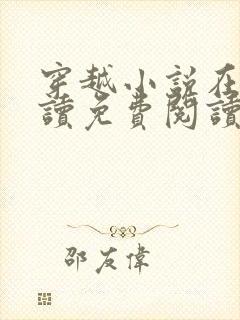 穿越小説在
讀免費閱讀
邵友偉